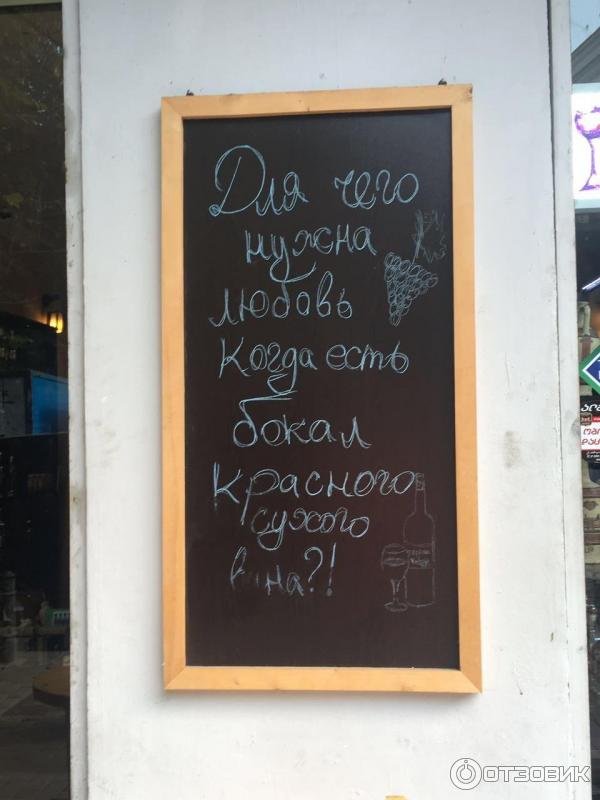 Для чего
нужна
любовь
когда есть
бокал
красного
сухого
вина?!
ОТЗОВИК